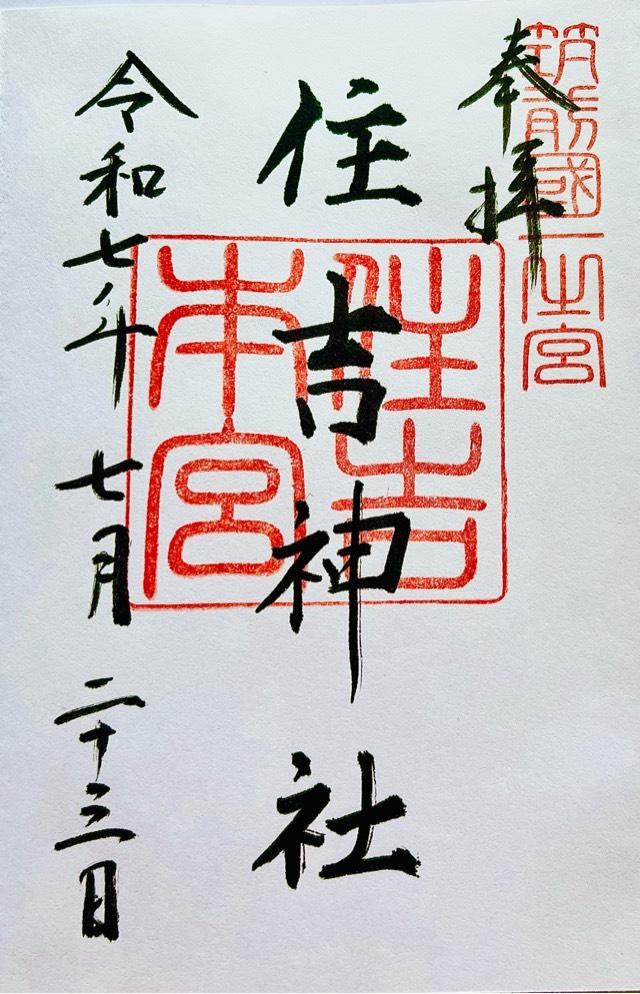 筑前國一之宮
奉拝
住吉神社
住吉
本宮
令和七年 七月 二十三日